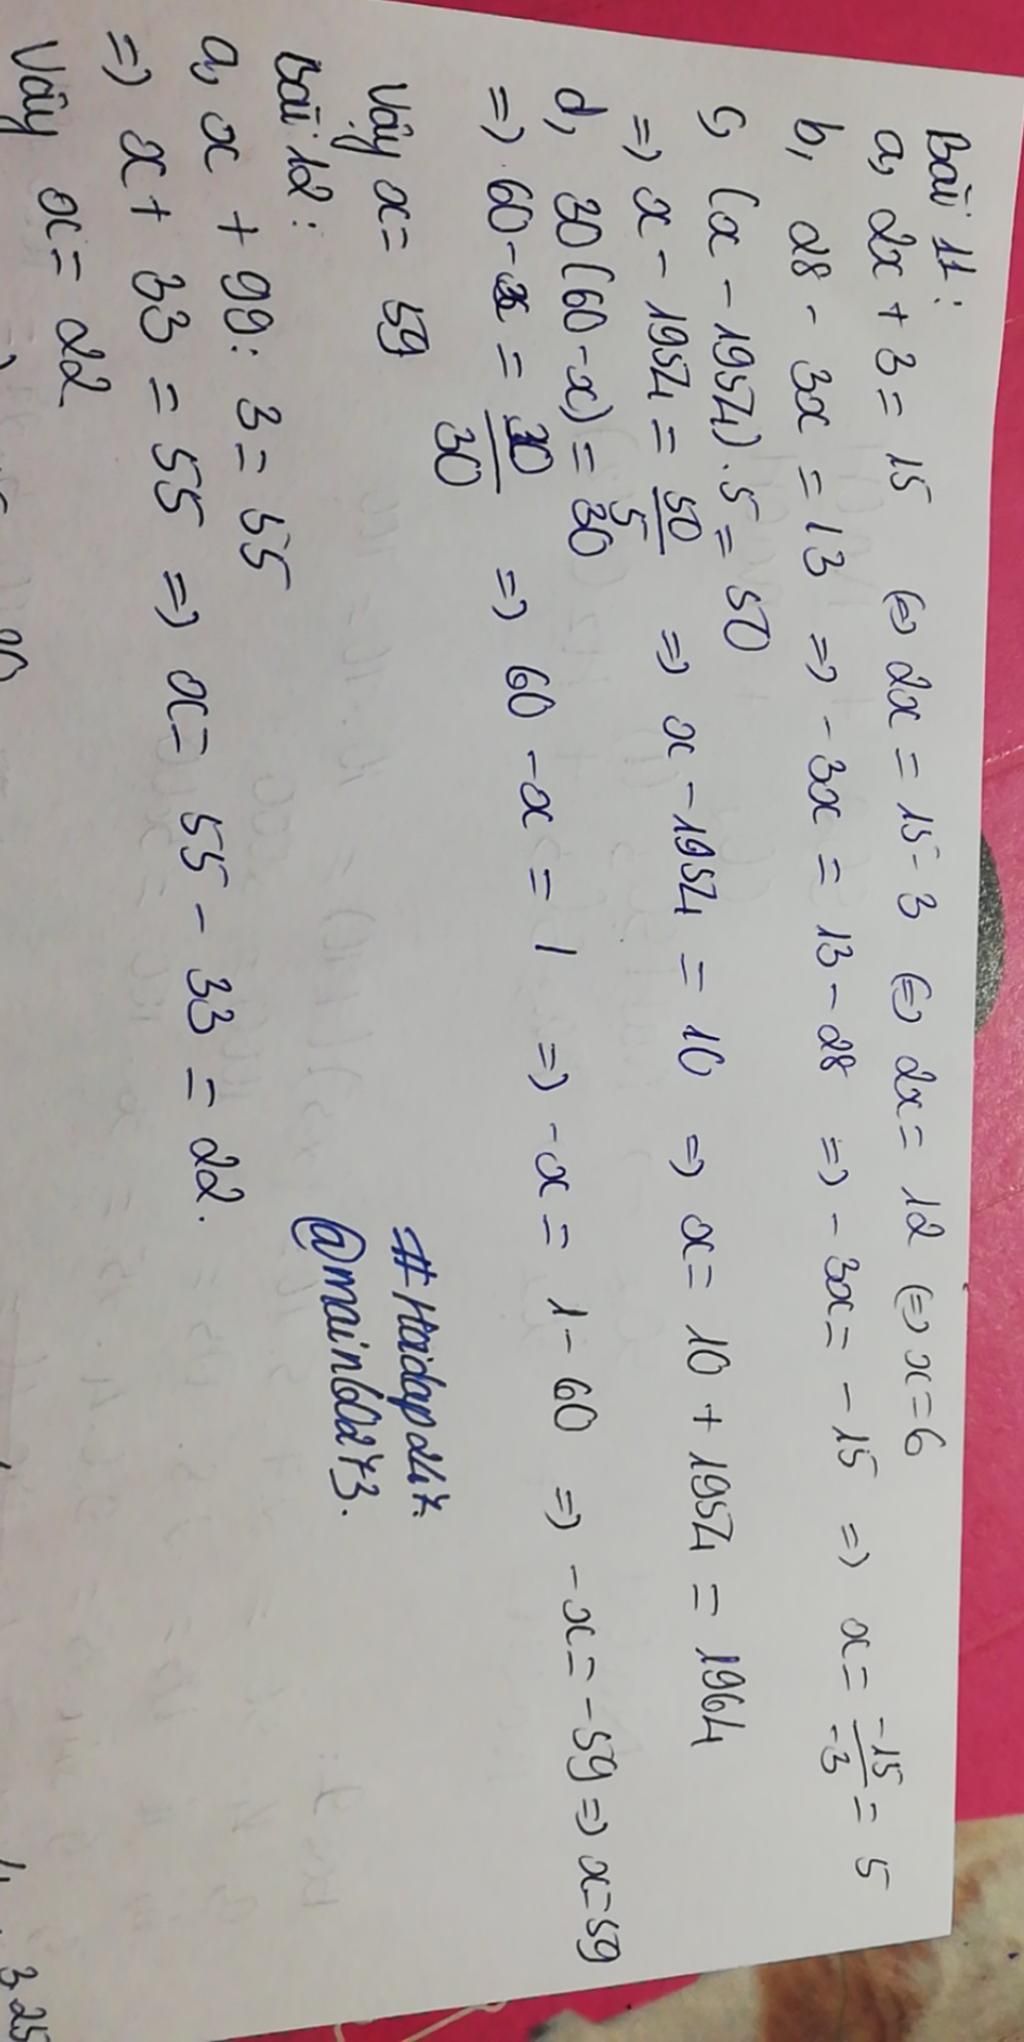 Bài 11:
a, 2x + 3 = 15 (=) 2x = 15 - 3 (=) 2x = 12 (=) x = 6
b, 28 - 3x = 13 => - 3x = 13 - 28 => - 3x = - 15 => x = -15/-3 = 5
c, (x - 1954) . 5 = 50
=> x - 1954 = 50/5 => x - 1954 = 10 => x = 10 + 1954 = 1964
d, 30(60 - x) = 30
=> 60 - x = 30/30 => 60 - x = 1 => - x = 1 - 60 => - x = - 59 => x = 59
Vậy x = 59
#Hoidap247.
@main60273.
Bài 12:
a, x + 99 : 3 = 55
=> x + 33 = 55 => x = 55 - 33 = 22.
Vậy x = 22